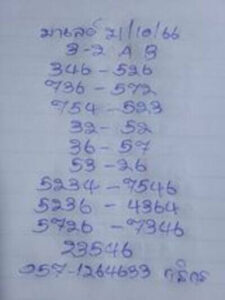 มาเลย์ 21/10/66
3-2 A B
346-526
736-572
754-523
32-52
36-57
53-26
5234-7546
5236-4364
5726-7346
23546
057-1264633